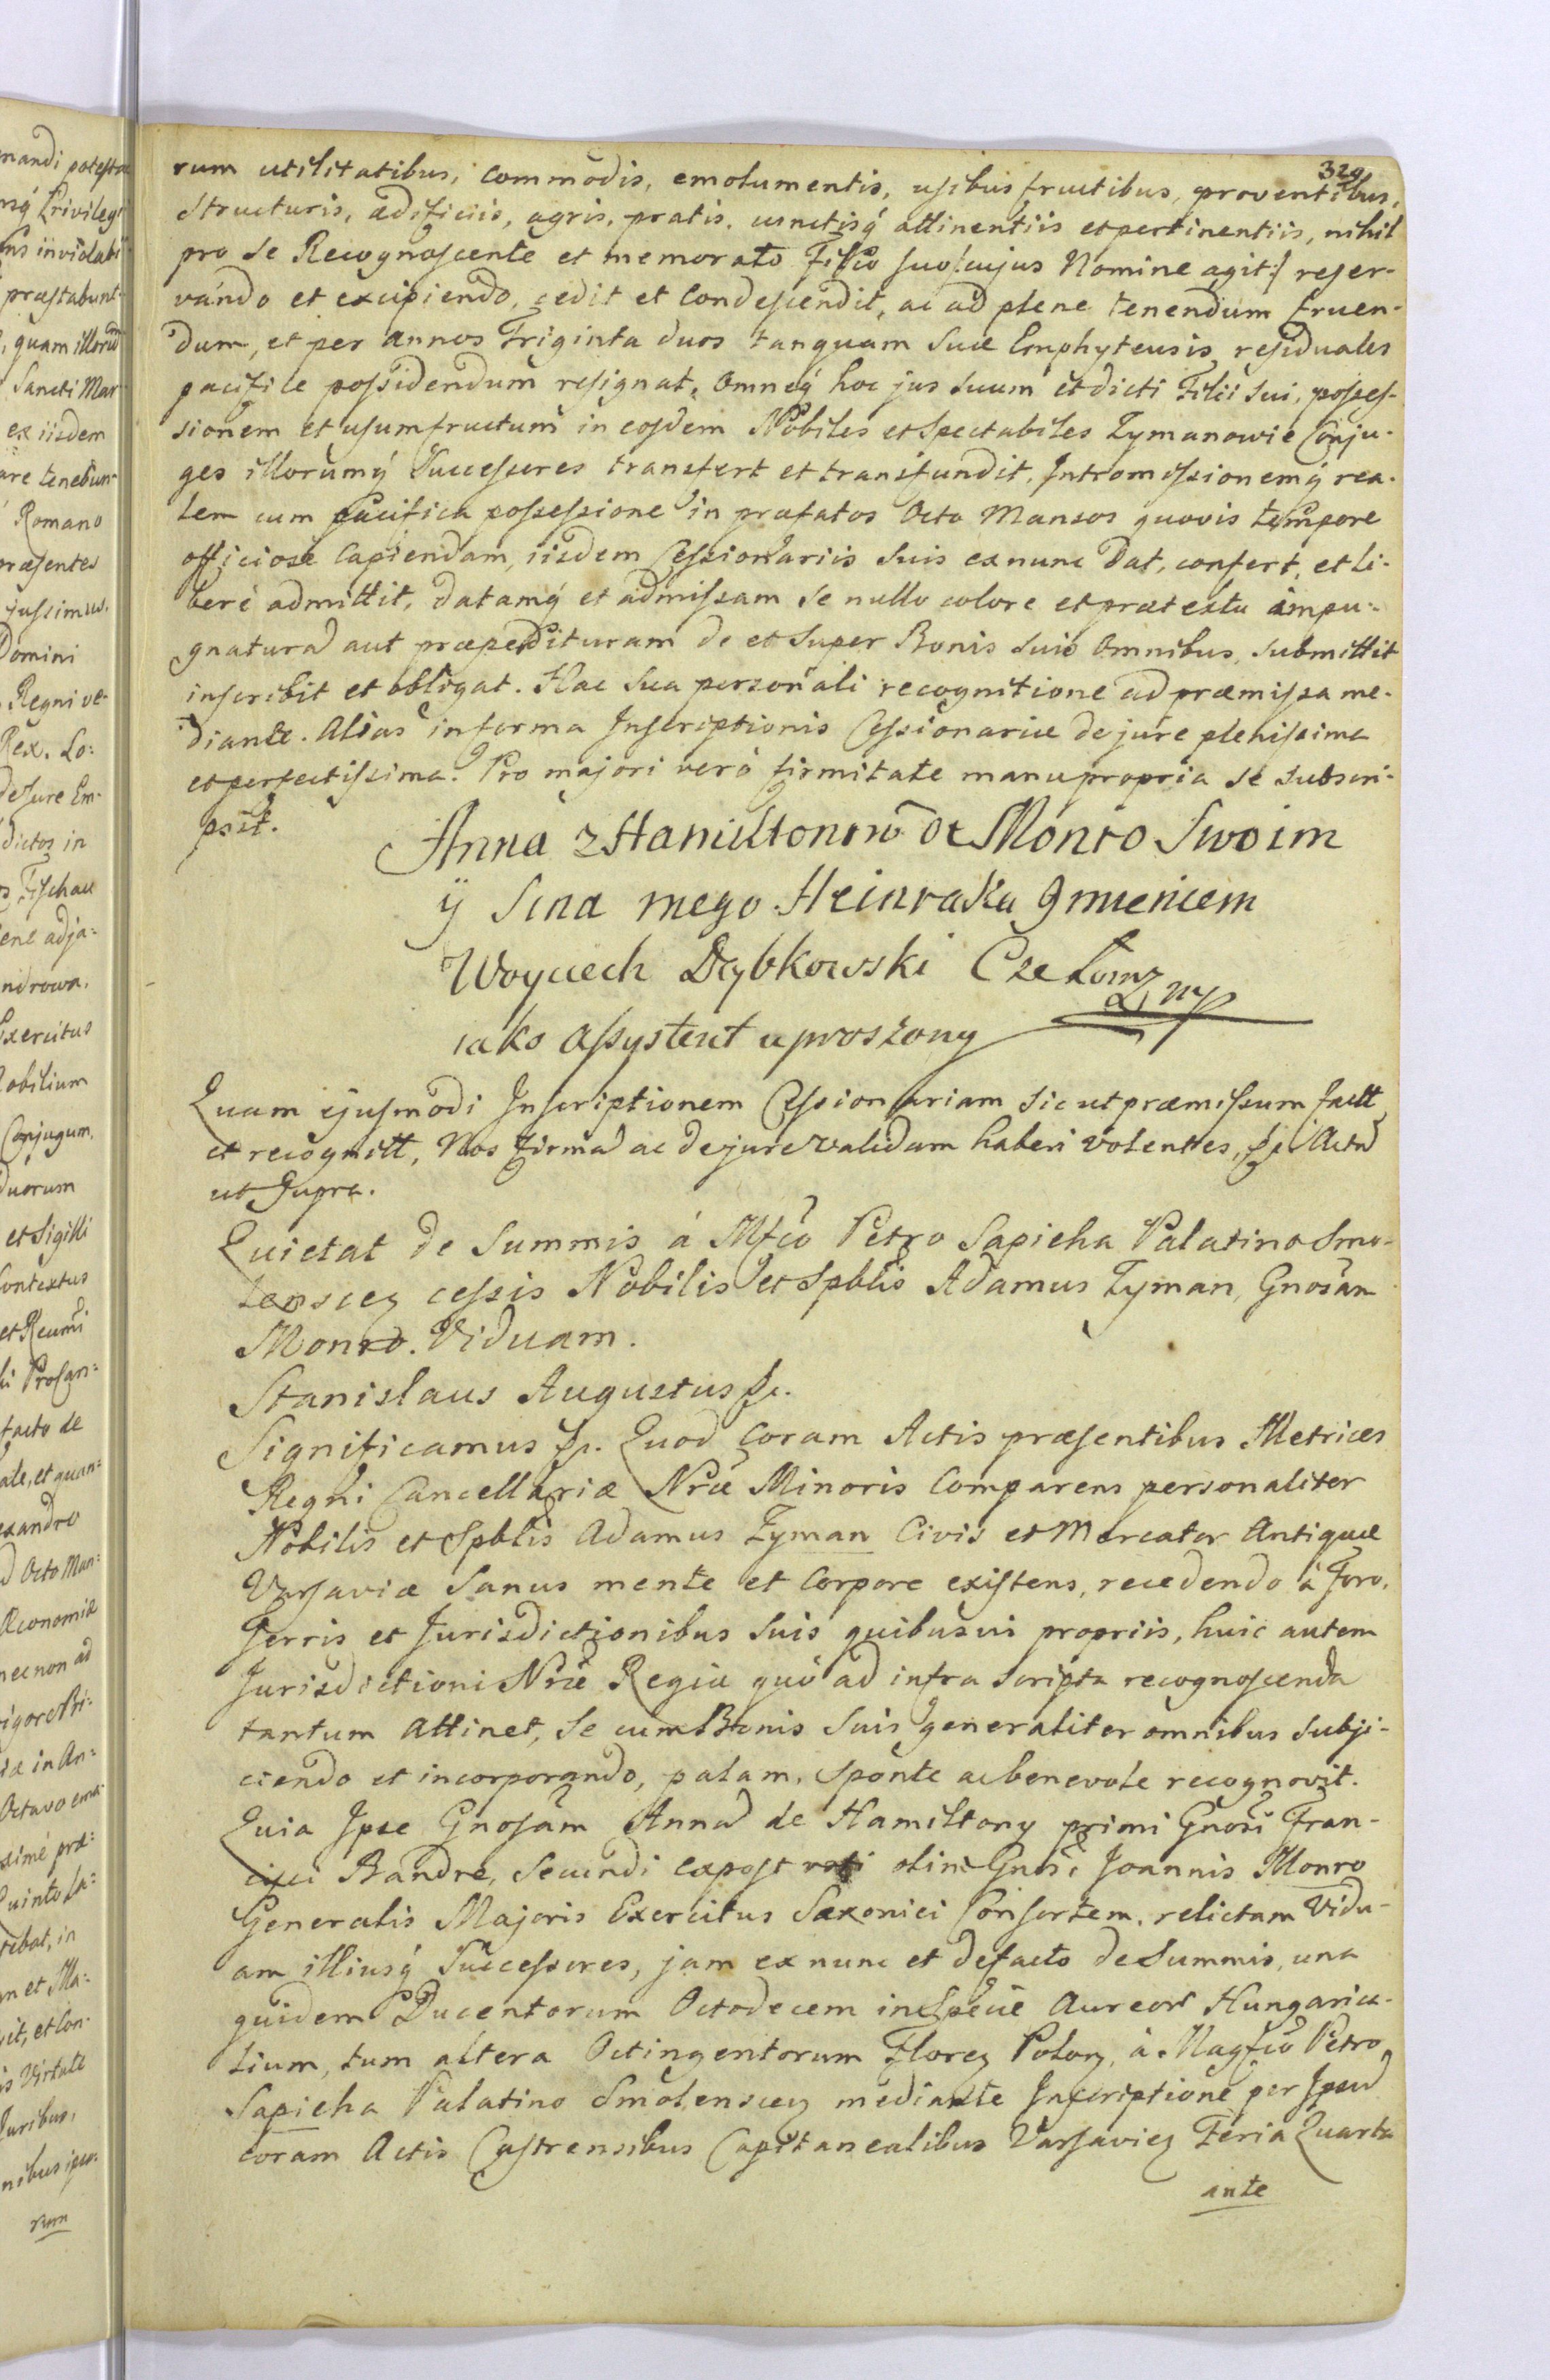 329
rum utilitatibus, commodis, emolumentis, usibus fructibus, proventibus,
structuris, ædificiis, agris, pratis, cunctisq́ attinentiis et pertinentiis, nihil
pro se Recognoscente et memorato Filio suo |:cujus Nomine agit:| reser-
vando et excipiendo, cedit et condescendit, ac ad plene tenendum fruen-
dum, et per annos Triginta duos tanquam suæ Emphyteusis residuales
pacifice possidendum resignat, omneq́ hoc jus suum et dicti Filii sui, posses-
sionem et usumfructum in eosdem Nobiles et Spectabiles Zymanowie Conju-
ges illorumq́ Successores transfert et transfundit, Intromissionemq́ rea-
lem cum pacifica possessione in præfatos Octo Mansos quovis tempore
officiose capiendam, iisdem Cessionariis suis ex nunc dat, confert, et li-
berè admittit, datamq́ et admissam se nullo colore et prætextu impu-
gnaturā aut præpedituram de et super Bonis suis omnibus, submittit
inscribit et obligat. Hac sua personali recognitione ad præmissa me-
diante. Alias in forma Inscriptionis Cessionariæ de jure plenissima
et perfectissima. Pro majori verò firmitate manu propria se subscri-
psit.
Anna z Hamiltonow de Monro Swoim
ÿ Sina mego Heinraka Jmieniem
Woyciech Dąbkowski Cze Łomz mp
iako assystent uproszony
Quam ejusmodi Inscriptionem Cessionariam sicut præmissum factt
et recognitt, Nos firmā ac de jure validam haberi volentes, &c. Actū
ut supra.
Quietat de Summis á Mfco Petro Sapieha Palatino Smo-
lenscen cessis Nobilis et Spblis Adamus Zyman, Gnosam
Monro. Viduam.
Stanislaus Augustus &c.
Significamus &c. Quod coram Actis præsentibus Metrices
Regni Cancellariæ Nræ Minoris Comparens personaliter
Nobilis et Spblis Adamus Zyman Civis et Mercator Antiquæ
Varsaviæ Sanus mente et Corpore existens, recedendo à Foro,
Terris et Jurisdictionibus suis quibusvis propriis, huic autem
Jurisdictioni Nræ Regiæ quò ad infra scripta recognoscenda
tantum attinet, se cum Bonis suis generaliter omnibus subji-
ciendo et incorporando, palam, sponte ac benevole recognovit.
Quia Ipse Gnosam Annā de Hamiltony primi Gnosi Fran-
cisci Bandre, secundi expost voti olim Gnosi Joannis Monro
Generalis Majoris Exercitus Saxonici Consortem, relictam Vidu-
am illiusq́ Successores, jam ex nunc et de facto de Summis, una
quidem Ducentorum Octodecem in Specie Aureor Hungarica-
lium, tum altera Octingentorum Floren Polon, à Magfco Petro
Sapieha Palatino Smolenscen mediante Inscriptione per Ipsū
coram Actis Castrensibus Capitanealibus Varsavien Feria Quarta
ante